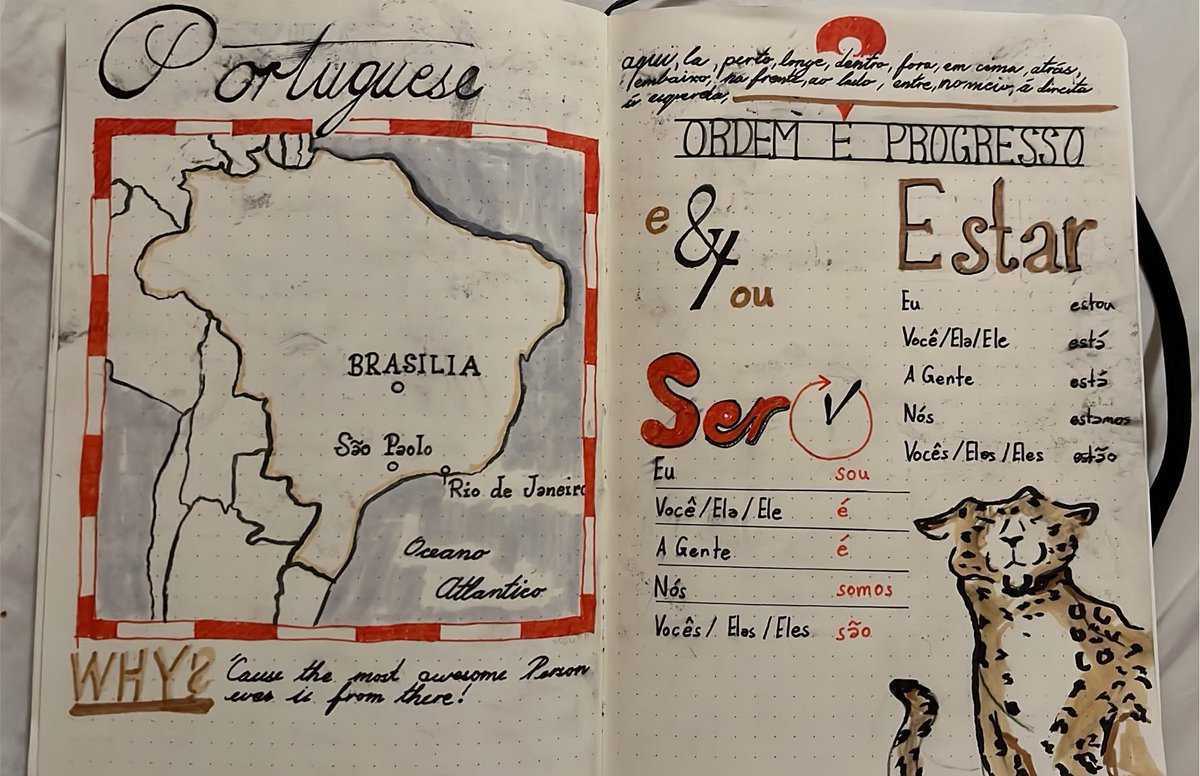 Portuguese
BRASILIA
São Paolo
Rio de Janeiro
Oceano
Atlantico
WHY?
'Cause the most awesome Person
ever is from there!
aqui, la, perto, longe, dentro, fora, em cima, atrás,
embaixo, na frente, ao lado, entre, no meio, à direita
à esquerda,
ORDEM E PROGRESSO
e & ou
Estar
Eu estou
Você/Ela/Ele está
A Gente está
Nós estamos
Vocês/Elas/Eles estão
Ser
Eu sou
Você/Ela/Ele é
A Gente é
Nós somos
Vocês/Elas/Eles são